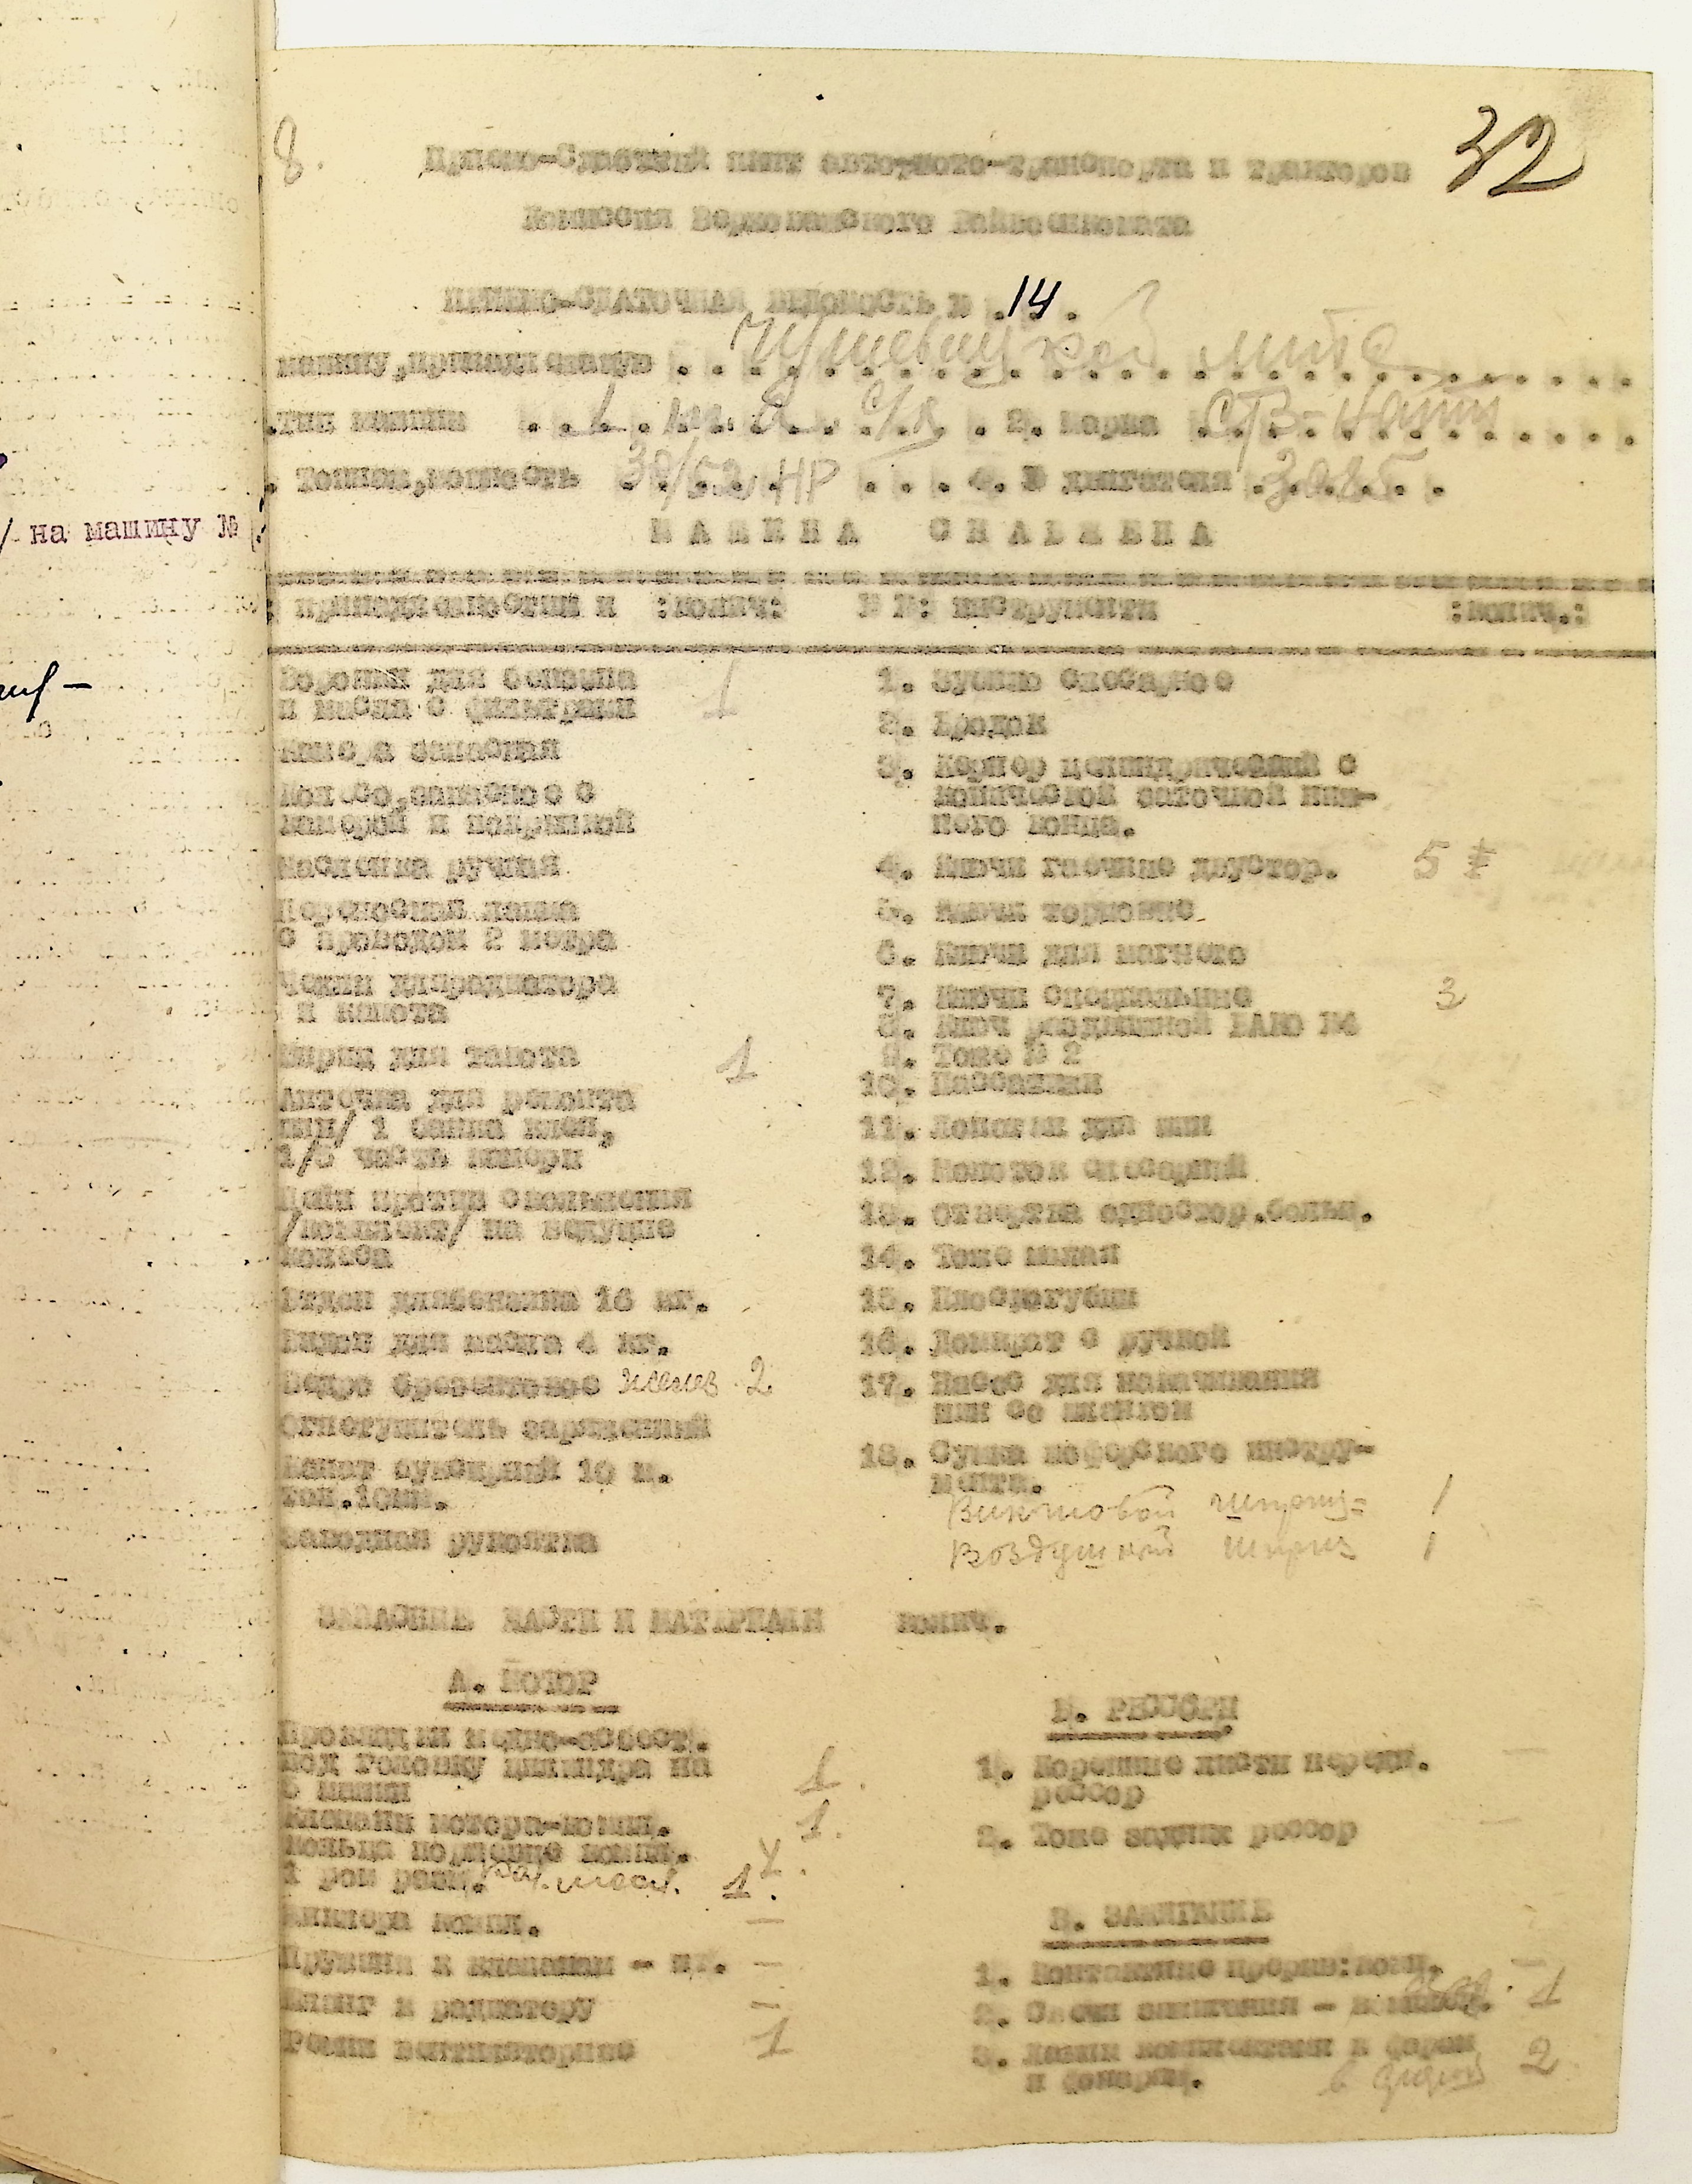 8.
32
Приемо-Сдаточный лист авто-мото-транспорта и тракторов
Комиссия Верхокамского Райвоенкомата
ПРИЕМО-СДАТОЧНАЯ ВЕДОМОСТЬ № 14.
машину, принадлежащую
тип машины 2. марка СТЗ-Нати
Тоннаж, мощность 38/52 HP 4. № двигателя 3085
/ на машину №
МАШИНА СНАБЖЕНА
: принадлежностями и :колич: № №: инструменты :колич.:
Воронки для бензина
и масла с фильтрами 1
Камера запасная
Колесо, запасное с
камерой и покрышкой
Масленка ручная
Переносная лампа
с проводом 2 метра
Чехлы для радиатора
и капота
Шприц для тавота 1
Аптечка для ремонта
шин/ 1 банка клея,
1/3 часть камеры
Цепи против скольжения
/комплект/ на ведущие
колеса
Бидон для бензина 16 кг.
Бидон для масла 4 кг.
Ведро брезентовое желез 2
Огнетушитель заряженный
Канат буксирный 10 м.
тол. 10мм.
Заводная рукоятка
1. Зубило слесарное
2. Бродок
3. Кернер цилиндрический с
конической заточкой ниж-
него конца.
4. Ключи гаечные двустор. 5
5. Ключи торцовые
6. Ключи для магнето
7. Ключи специальные 3
8. Ключ раздвижной БАКО №4
9. Тоже № 2
10. Пассатижи
11. Лопатки для шин
12. Молоток слесарный
13. Отвертка одностор. больш.
14. Тоже малая
15. Плоскогубцы
16. Домкрат с ручкой
17. Насос для накачивания
шин со шлангом
18. Сумка шоферского инстру-
мента.
Винтовой шприц 1
Воздушный шприц 1
ЗАПАСНЫЕ ЧАСТИ И МАТЕРИАЛЫ колич.
А. МОТОР
Прокладки медно-асбест.
под головку цилиндра на
5 машин 1.
Клапаны мотора-компл. 1.
Кольца поршневые компл. 4.
1 рем разм. 1.
Жиклеры компл. —
Пружины к клапанам - шт. —
Шланг к радиатору —
Ремни вентиляторные 1
Б. РЕССОРЫ
1. Коренные листы передн. —
рессор
2. Тоже задних рессор —
В. ЗАЖИГАНИЕ
1. Контактные прерыв: комп. —
2. Свечи зажигания - 1
3. Лампы комплектами к фарам 2
и фонарям.